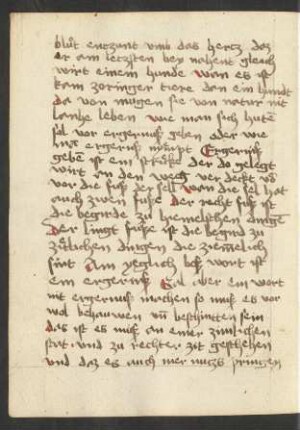 blůt entzunt vmb das hertz daz
er am letzsten bey nohent gleich
wirt einem hunde wan es ist
kam zorniger tiere dan ein hundt
da von mugen sie von natur nit
lanhe leben wie man sich huten
sol vor ergernuß geben oder wie
ergernuß nimpt Ergernuß
geben ist ein der do gelegt
wirt an den weg ver deckt vō
vor die fuß der sell wan die sel hat
auch zwen fusse der recht fuß ist
die begirde zu himelschen dingen
Der lingk fusse ist die begird zu
zůtlichen dingen die zimelich
sint Ain yeglich boß wort ist
ein ergernuß Sal aber ein wort
nit ergernuß machen so muß es vor
wol behauwen vñ beschnitten sein
das ist es muß an einer zimlichen
stat vnd zu rechter zit geschehen
vnd daz es auch mer nutzs pringen